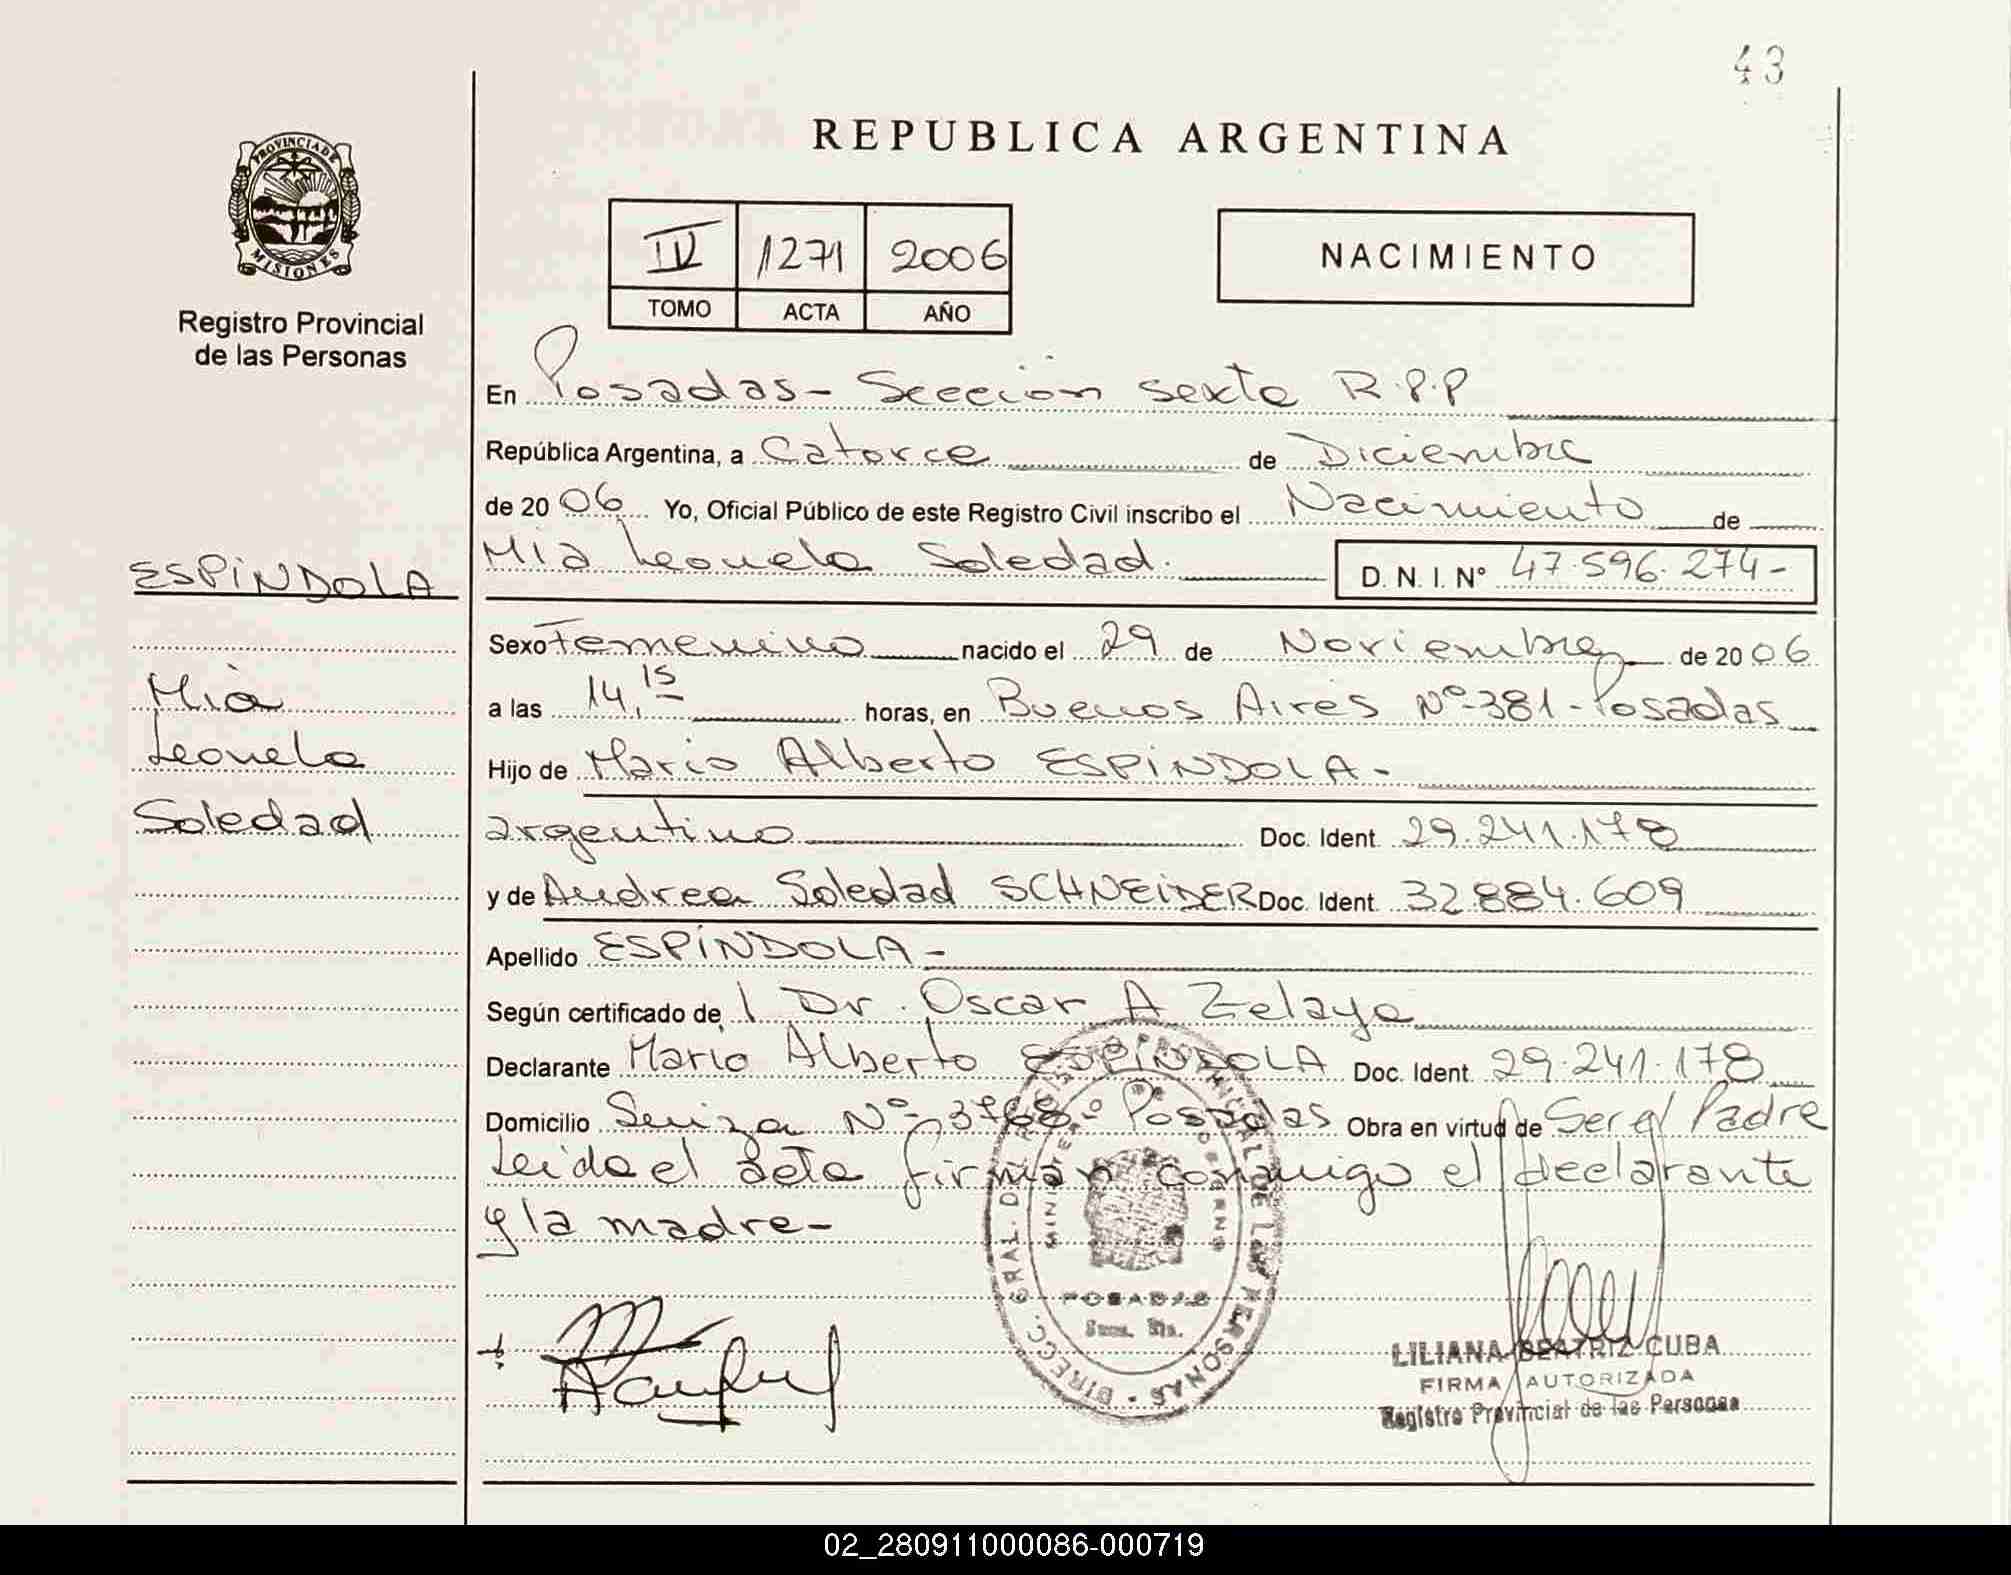 43
REPUBLICA ARGENTINA
PROVINCIA DE
MISIONES
Registro Provincial
de las Personas
IV 1271 2006
TOMO ACTA AÑO
NACIMIENTO
En Posadas - Sección sexta R.P.P
República Argentina, a Catorce de Diciembre
de 2006 Yo, Oficial Público de este Registro Civil inscribo el Nacimiento de
Mia Leonela Soledad. D. N. I. Nº 47.596.274-
ESPINDOLA
Mia
Leonela
Soledad
Sexo Femenino nacido el 29 de Noviembre de 2006
a las 14,15 horas, en Buenos Aires Nº 381 - Posadas
Hijo de Mario Alberto ESPINDOLA -
argentino Doc. Ident. 29.241.178
y de Andrea Soledad SCHNEIDER Doc. Ident. 32.884.609
Apellido ESPINDOLA -
Según certificado de l Dr. Oscar A Zelaya
Declarante Mario Alberto ESPINDOLA Doc. Ident. 29.241.178
Domicilio Suiza Nº 3768 - Posadas Obra en virtud de Ser el Padre
Leida el acta firman conmigo el declarante
y la madre -
DIRECC. GRAL. DEL REGISTRO PROVINCIAL DE LAS PERSONAS
MINISTERIO DE GOBIERNO
POSADAS
LILIANA BEATRIZ CUBA
FIRMA AUTORIZADA
Registro Provincial de las Personas
02_280911000086-000719